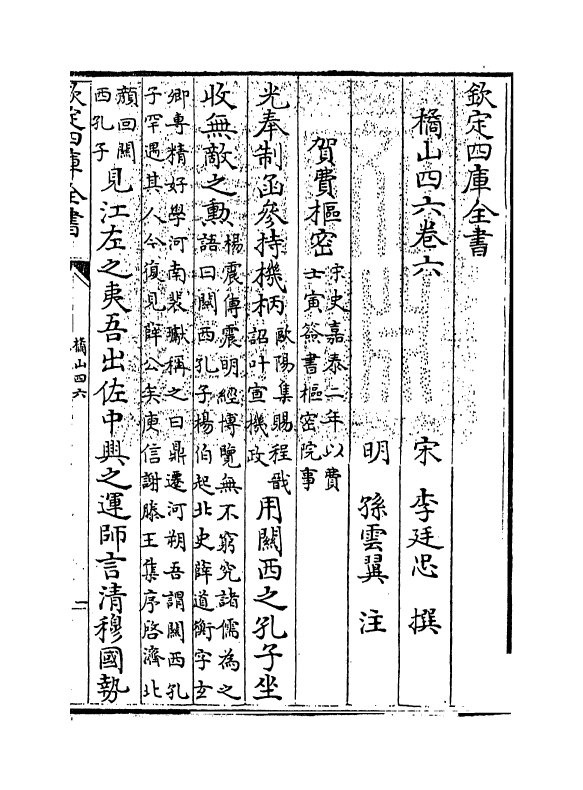 欽定四庫全書
橘山四六卷六
宋　李廷忠　撰
明　孫雲翼　注
賀費樞密
宋史嘉泰二年以費
士寅簽書樞密院事
光奉制函參持機柄
歐陽集賜程戩
詔叶宣機政
用關西之孔子坐
收無敵之勲
楊震傳震明經博覽無不窮究諸儒為之
語曰關西孔子楊伯起北史薛道衡字玄
卿專精好學河南裴讞稱之曰鼎遷河朔吾謂關西孔
子罕遇其人今復見薛公矣庾信謝滕王集序啓濟北
顔回關
西孔子
見江左之夷吾出佐中興之運師言清穆國勢
欽定四庫全書
橘山四六
二